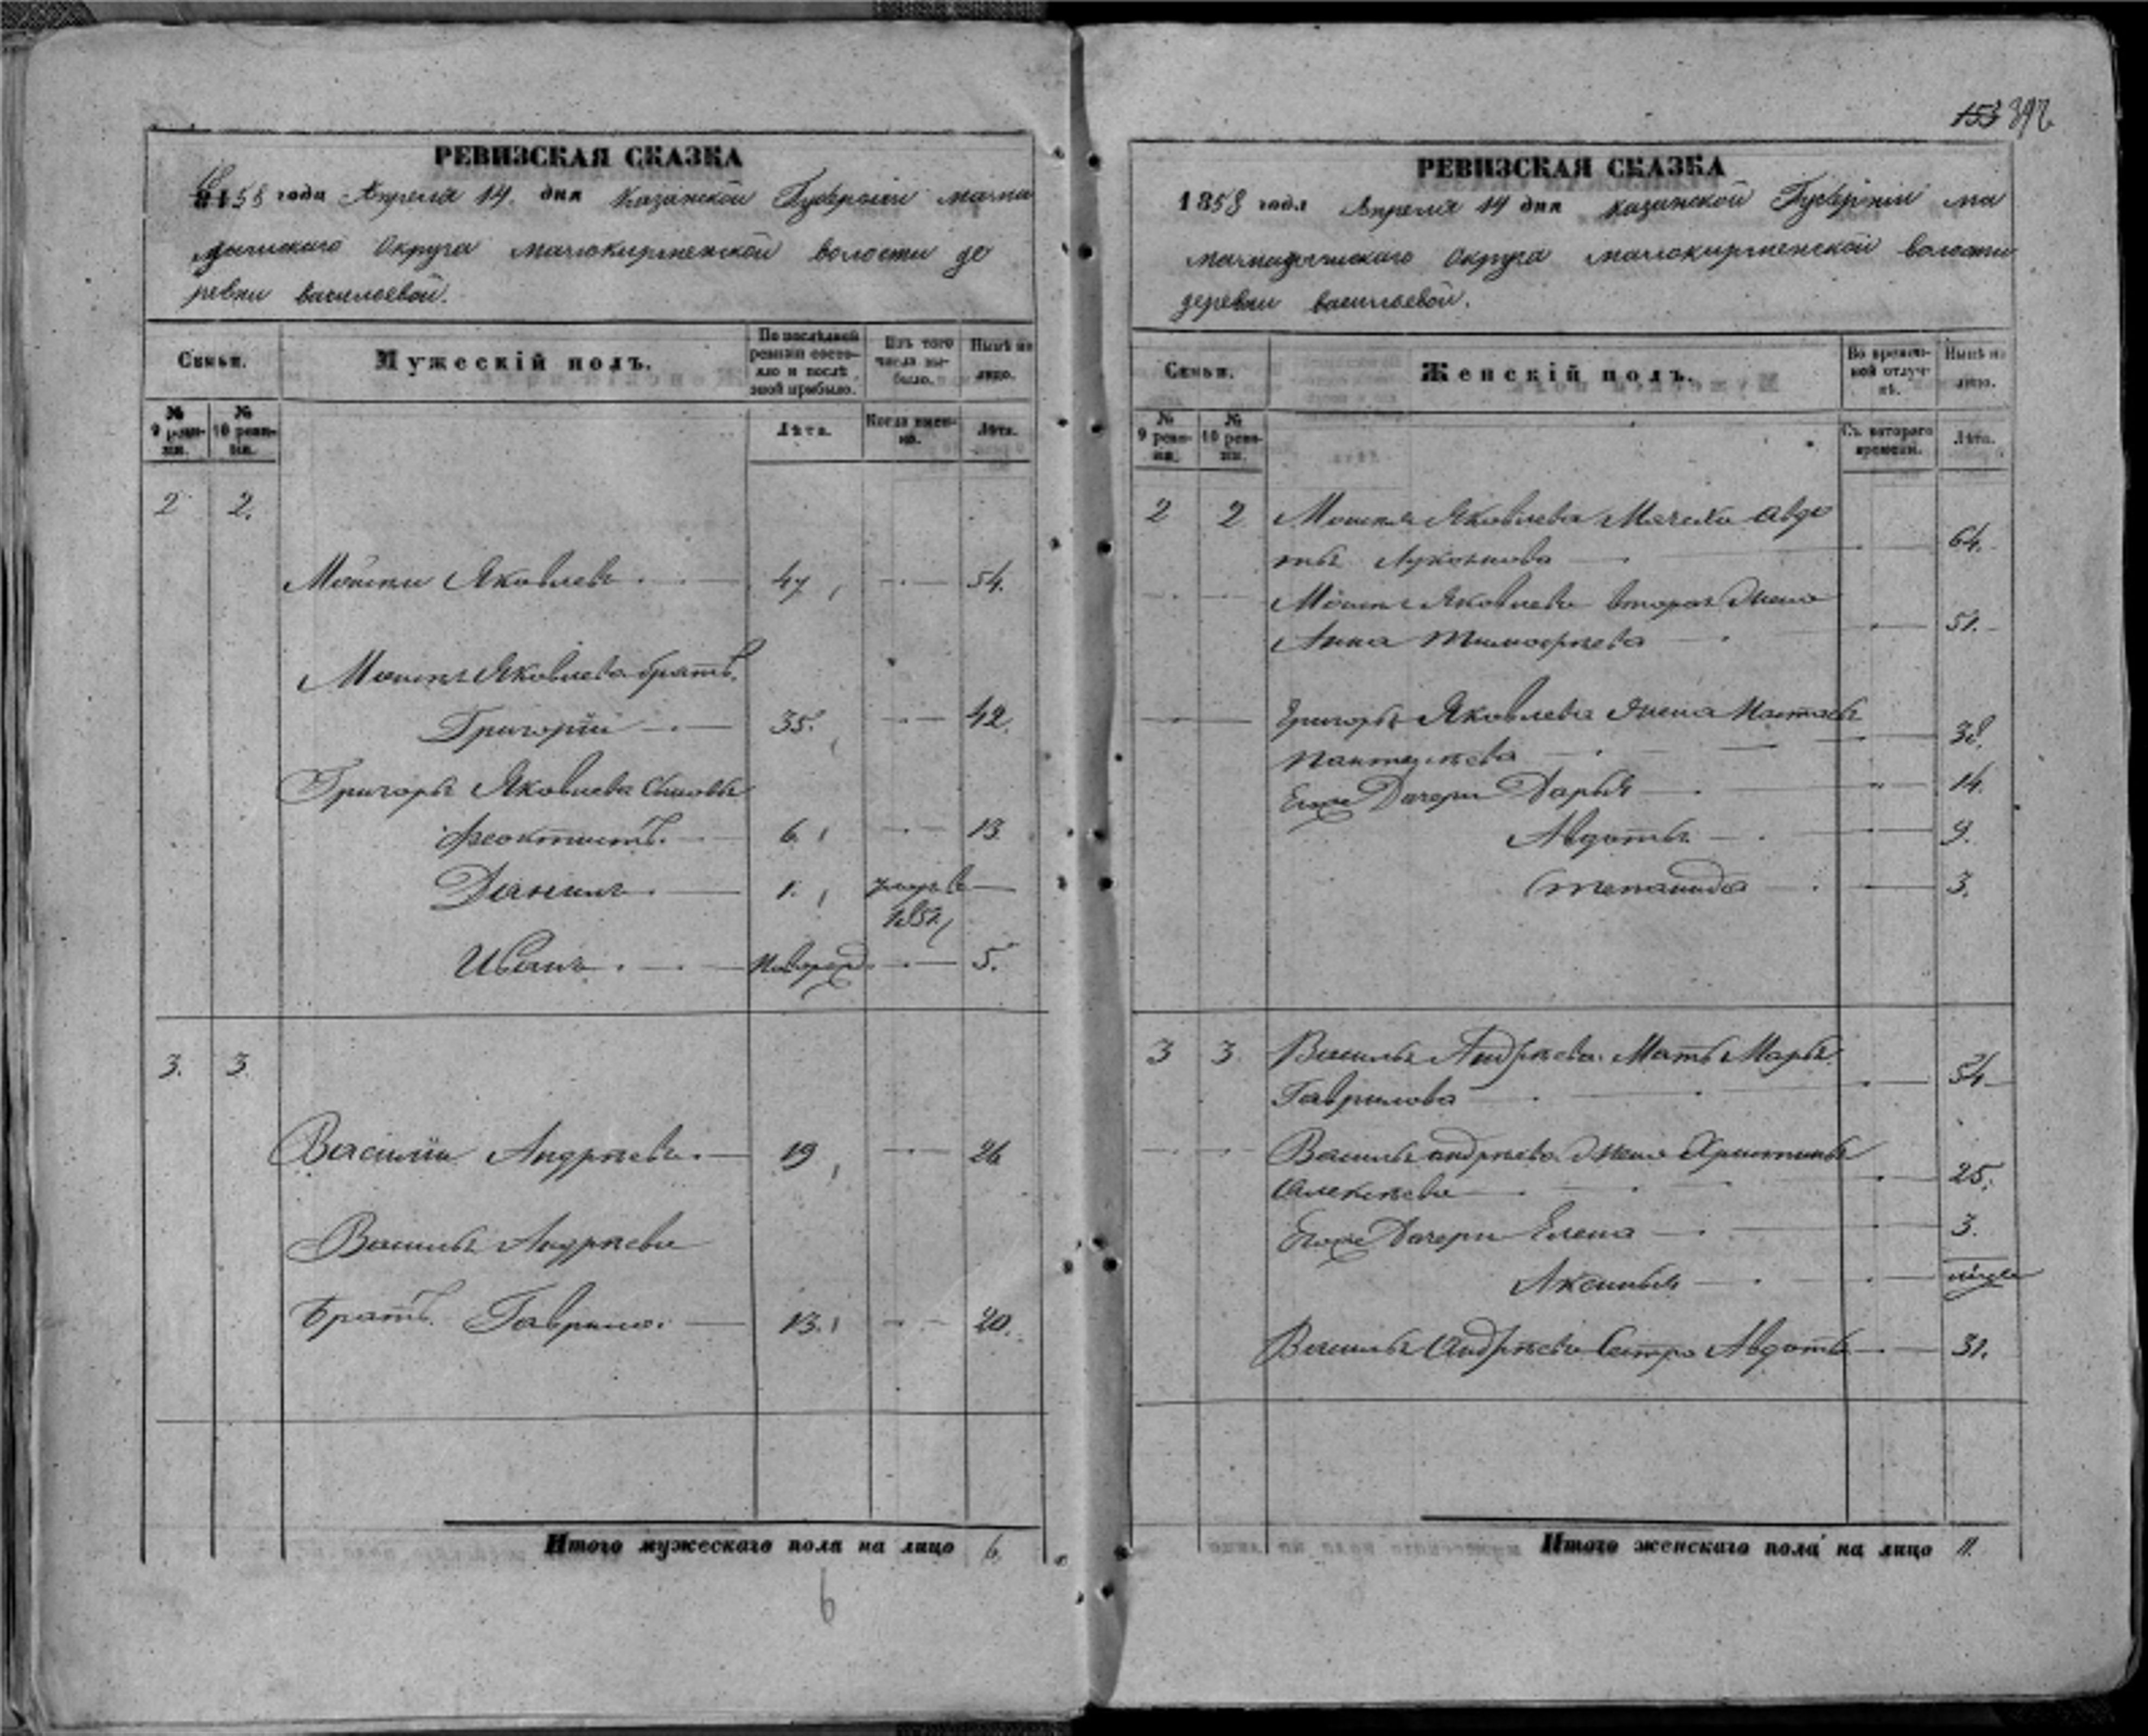 РЕВИЗСКАЯ СКАЗКА
1858 года Апреля 14. дня Казанской Губерніи мама
дышскаго Округа малокирменской волости де
ревни васильевой.
Семьи.
Мужескій полъ.
По послѣдней ревизіи состояло и послѣ зной прибыло.
Изъ того числа выбыло.
Нынѣ на лицо.
№ 9 ревизіи.
№ 10 ревизіи.
Лѣта.
Когда именно.
Лѣта.
2 2.
Яковлевъ 47 54.
Яковлева братъ
Григорій 35. 42.
Григорья Яковлева Сыновья
Феоктистъ 6. 13
Данилъ 1.
Иванъ новорож 5.
3. 3
Василій Андрѣевъ 19 26
Василья Андрѣева
Братъ Гаврило 13. 20.
Итого мужескаго пола на лицо 6.
6
153 392
РЕВИЗСКАЯ СКАЗКА
1858 года Апреля 14 дня Казанской Губерніи ма
мамадышскаго Округа малокирменской волости
деревни васильевой.
Семьи.
Женскій полъ.
Во временной отлучкѣ.
Нынѣ на лицо.
№ 9 ревизіи.
№ 10 ревизіи.
Съ котораго времени.
Лѣта.
2 2 Яковлева Мачиха Авдо
тья 64.
Яковлева вторая жена
Анна Тимофѣева 51.
Григорья Яковлева жена Настасья
Пантелѣева 38.
Егоже Дочери Дарья 14.
Авдотья 9.
Степанида 3.
3 3 Василья Андрѣева Мать Марья
Гаврилова 54
Василья андрѣева жена Христинья
Алексѣева 25.
Егоже Дочери Елена 3.
Аксинья
Василья Андрѣева Сестра Авдотья 31.
Итого женскаго пола на лицо 11.